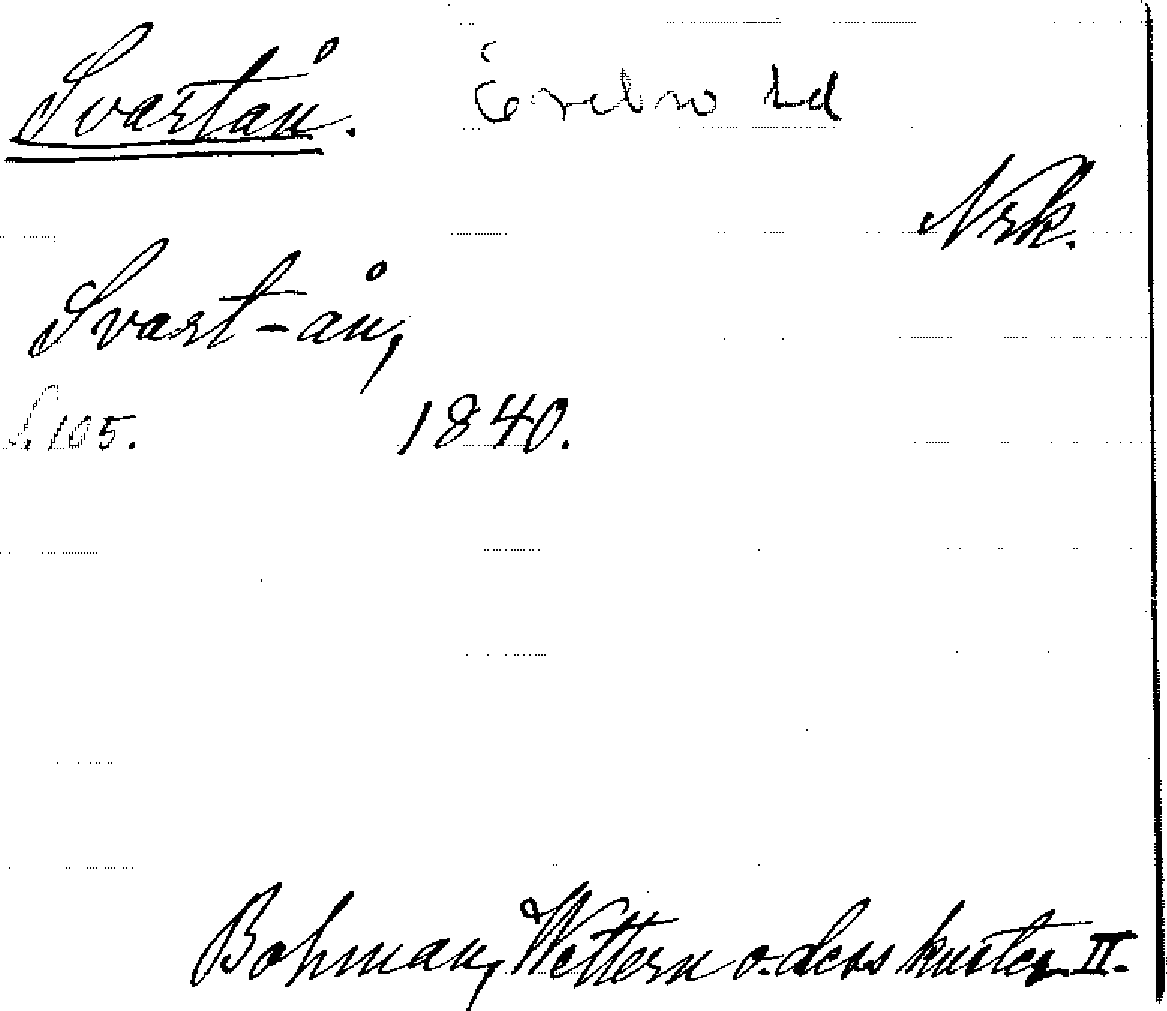 Svartån. Örebro hd
Nrk.
Svart-ån,
S. 105. 1840.
Bohman, Wettern o. dess kuster II.